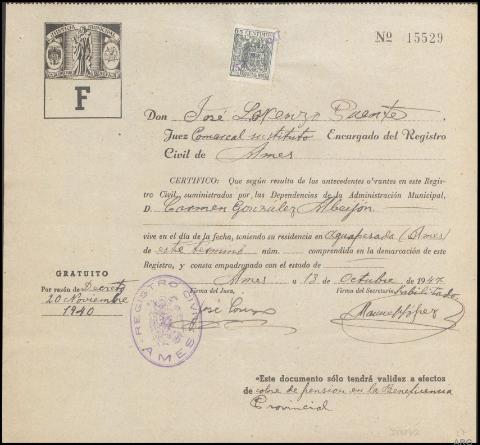 JUSTICIA MUNICIPAL
F
15 CENTIMOS
Nº 15529
Don José Lorenzo Puente
Juez Comarcal sustituto Encargado del Registro
Civil de Ames
CERTIFICO: Que según resulta de los antecedentes obrantes en este Regis-
tro Civil, suministrados por las Dependencias de la Administración Municipal,
D. Carmen González Albeijon
vive en el día de la fecha, teniendo su residencia en Aguapesada (Ames)
de este termino núm. comprendida en la demarcación de este
Registro, y consta empadronado con el estado de
Ames a 13 de Octubre de 1947
GRATUITO
Por razón de Decreto
20 Noviembre
1940
Firma del Juez,
José Lorenzo
Firma del Secretario Habilitado
REGISTRO CIVIL
AMES
«Este documento sólo tendrá validez a efectos
de cobro de pension en la Beneficencia
Provincial
ARG